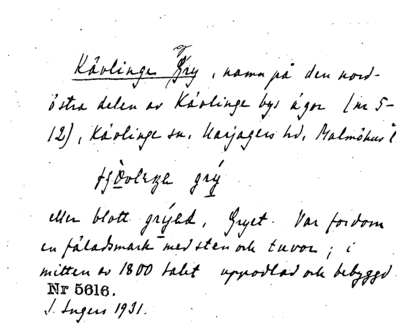 Kävlinge Gry, namn på den nord-
östra delen av Kävlinge bys ägor (nr 5-
12), Kävlinge sn, Harjagers hd, Malmöhus l
grý
eller blott, Gryet. Var fordom
en fäladsmark med sten och tuvor; i
mitten av 1800 talet uppodlad och bebyggd.
Nr 5616.
J. Ingers 1931.